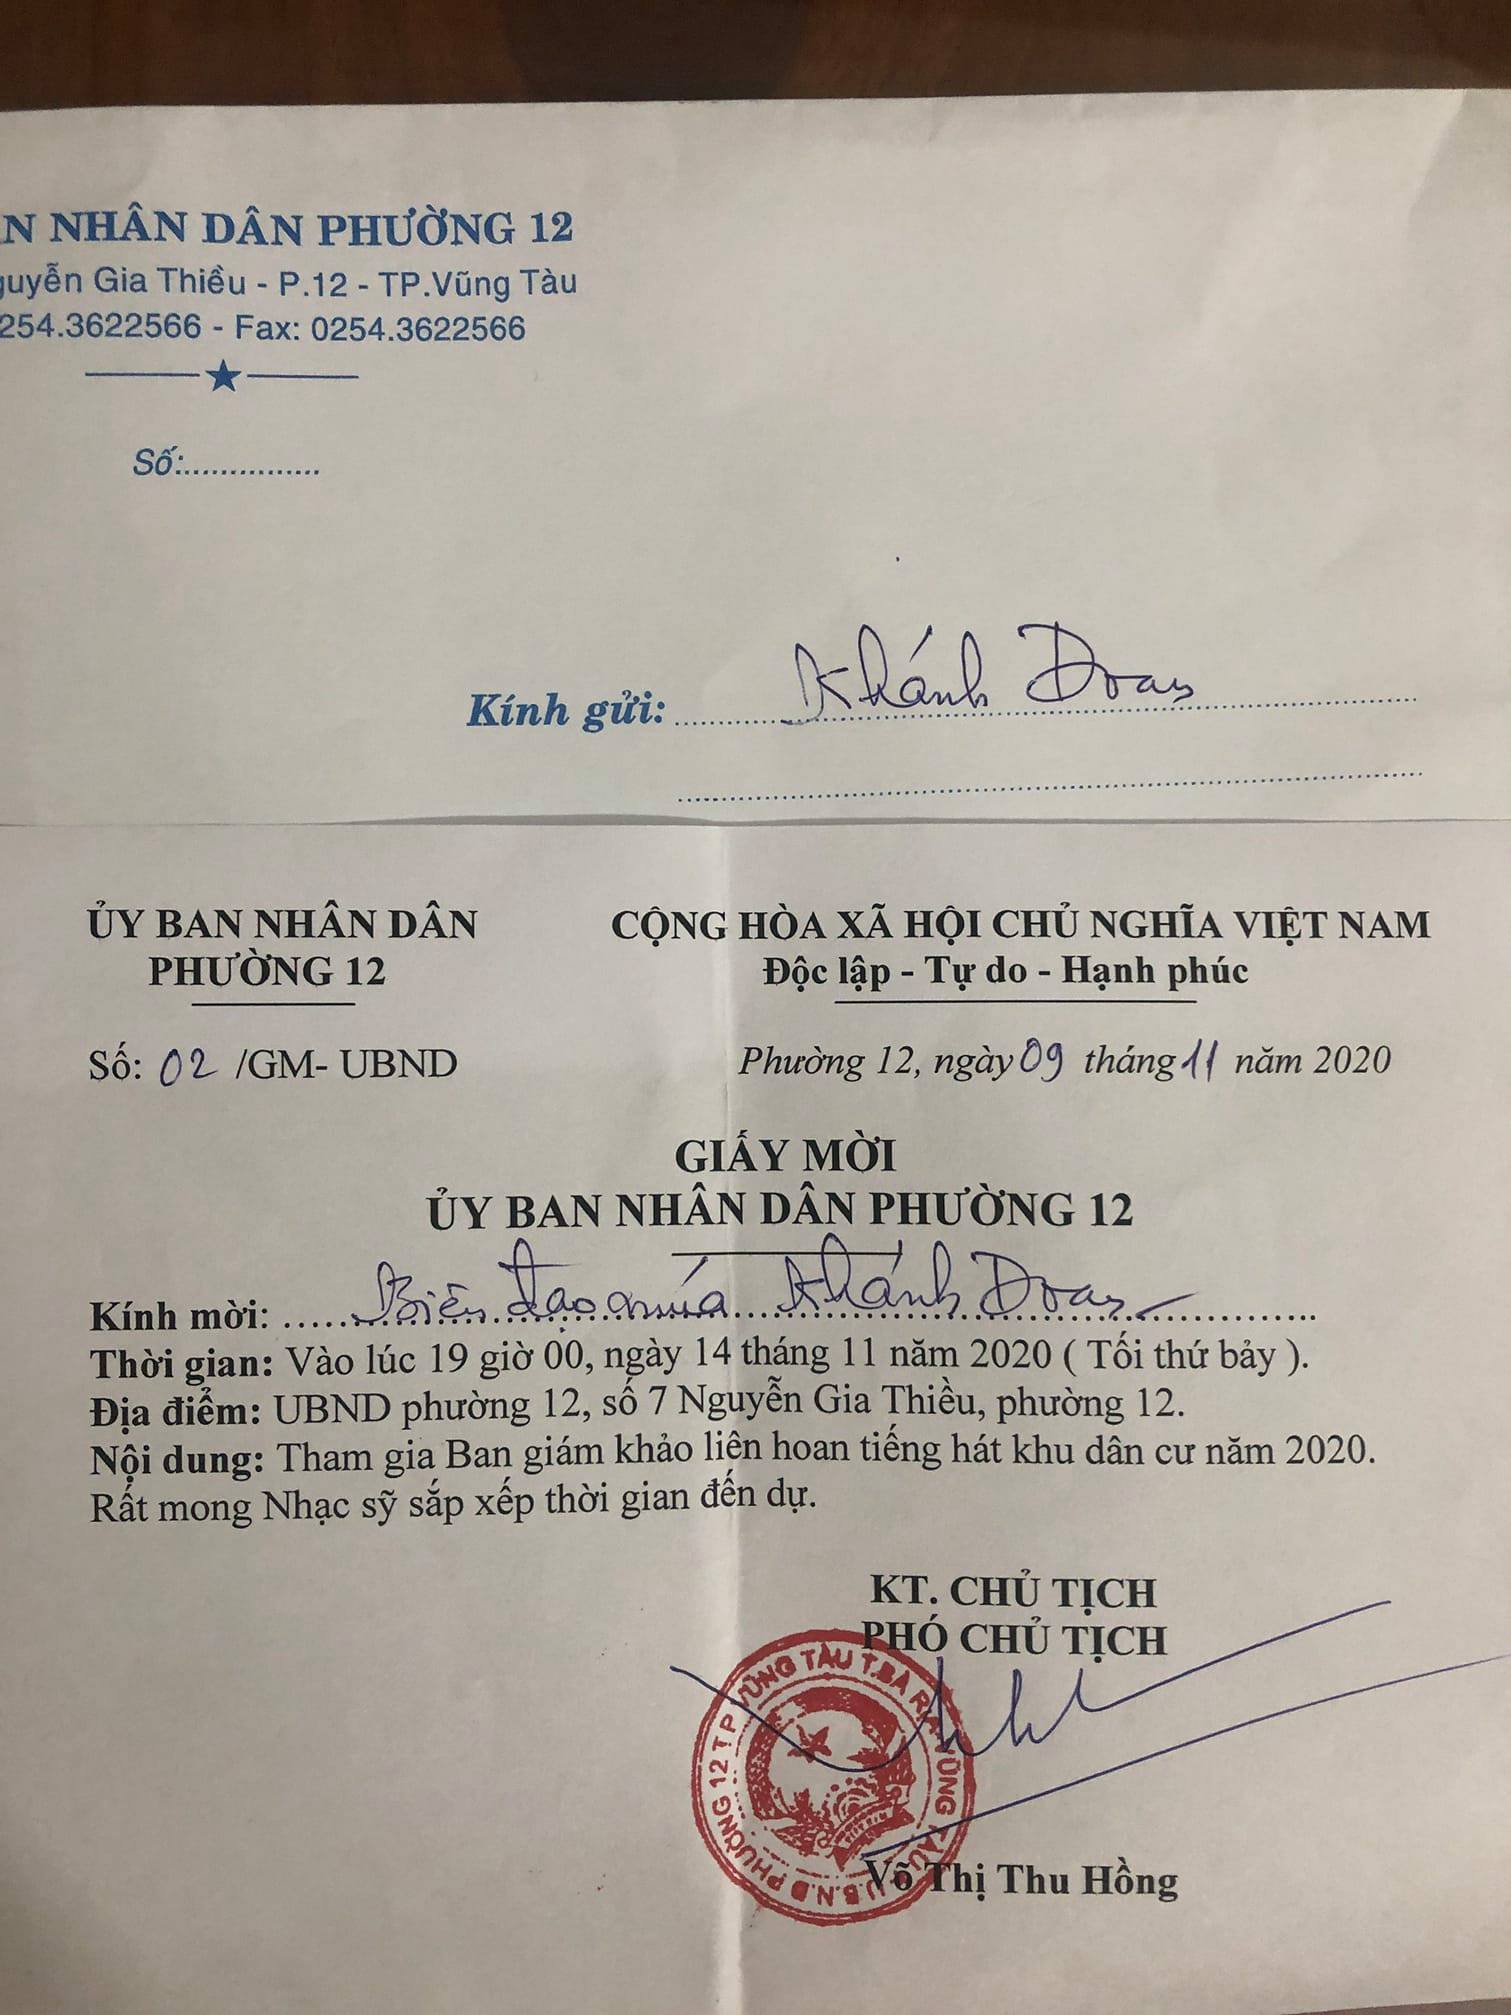 N NHÂN DÂN PHƯỜNG 12
guyễn Gia Thiều - P.12 - TP.Vũng Tàu
254.3622566 - Fax: 0254.3622566
Số:...............
Kính gửi: Khánh Doan
ỦY BAN NHÂN DÂN
PHƯỜNG 12
CỘNG HÒA XÃ HỘI CHỦ NGHĨA VIỆT NAM
Độc lập - Tự do - Hạnh phúc
Số: 02 /GM- UBND
Phường 12, ngày 09 tháng 11 năm 2020
GIẤY MỜI
ỦY BAN NHÂN DÂN PHƯỜNG 12
Kính mời: Biên đạo múa Khánh Doan
Thời gian: Vào lúc 19 giờ 00, ngày 14 tháng 11 năm 2020 ( Tối thứ bảy ).
Địa điểm: UBND phường 12, số 7 Nguyễn Gia Thiều, phường 12.
Nội dung: Tham gia Ban giám khảo liên hoan tiếng hát khu dân cư năm 2020.
Rất mong Nhạc sỹ sắp xếp thời gian đến dự.
KT. CHỦ TỊCH
PHÓ CHỦ TỊCH
U.B.N.D PHƯỜNG 12 TP VŨNG TÀU T.BÀ RỊA VŨNG TÀU
Võ Thị Thu Hồng